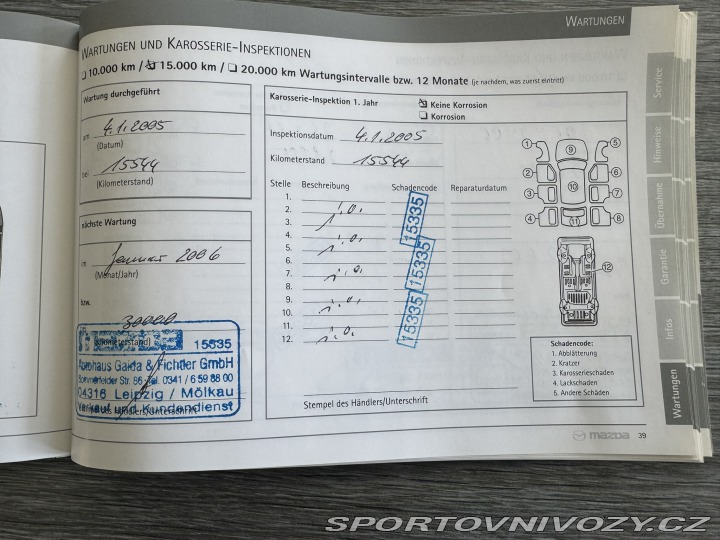 WARTUNGEN
WARTUNGEN UND KAROSSERIE-INSPEKTIONEN
10.000 km / 15.000 km / 20.000 km Wartungsintervalle bzw. 12 Monate (je nachdem, was zuerst eintritt)
Wartung durchgeführt
am 4.1.2005
(Datum)
bei 15544
(Kilometerstand)
nächste Wartung
im Januar 2006
(Monat/Jahr)
bzw.
30000
(Kilometerstand)
15335
Autohaus Gaida & Fichtler GmbH
Sommerfelder Str. 86 Tel. 0341 / 6 59 88 00
04316 Leipzig / Mölkau
Verkauf und Kundendienst
Karosserie-Inspektion 1. Jahr
Keine Korrosion
Korrosion
Inspektionsdatum 4.1.2005
Kilometerstand 15544
Stelle Beschreibung Schadencode Reparaturdatum
1.
2. i.O.
3.
4.
5. i.O.
6.
7. i.O.
8.
9.
10. i.O.
11.
12. i.O.
15335
15335
15335
Stempel des Händlers/Unterschrift
1 5
2 6
3 7
4 8
9
10
11
12
Schadencode:
1. Abblätterung
2. Kratzer
3. Karosserieschäden
4. Lackschaden
5. Andere Schäden
mazda 39
Service
Hinweise
Übernahme
Garantie
Infos
Wartungen
SPORTOVNIVOZY.CZ